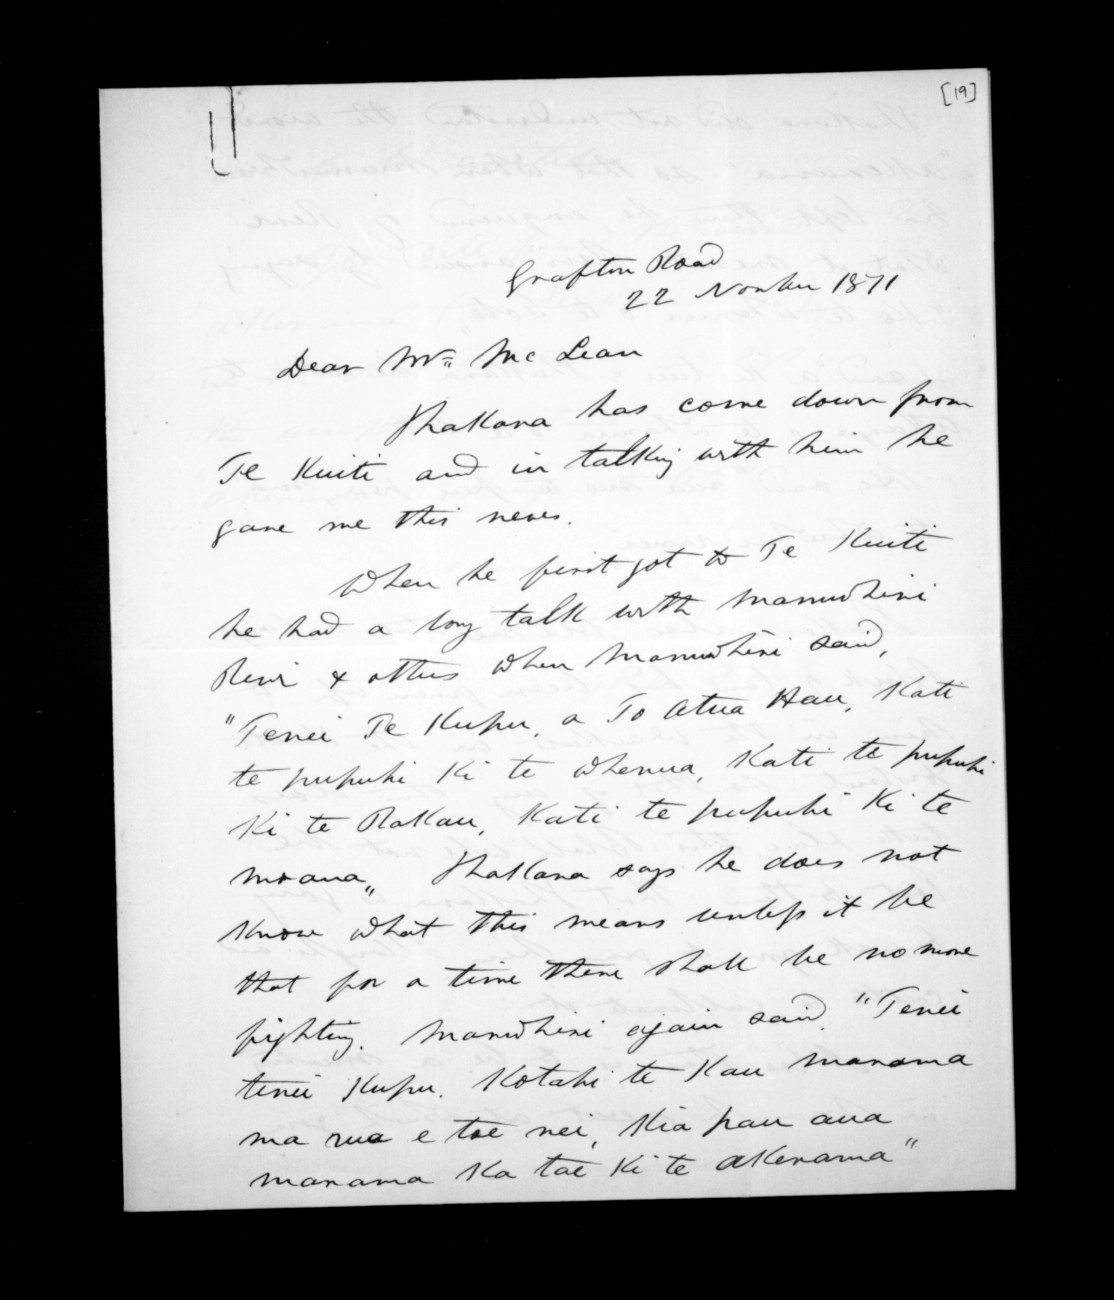 [19]
Grafton Road
22 Novber 1871
Dear Mr McLean
Hakana has come down from
Te Kuiti and in talking with him he
gave me this news.
When he first got to Te Kuiti
he had a long talk with Manuwhiri
Rewi & others when Manuwhiri said,
"Tenei Te Kupu, a To Atua Hau, Kati
te pupuhi Ki te whenua, Kati te pupuhi
Ki te Rakau, Kati te pupuhi Ki te
moana" Hakana says he does not
know what this means unless it be
that for a time there shall be no more
fighting. Manuwhiri again said. "Tenei
tenei Kupu. Kotahi te Kau marama
ma rua e toe nei, Kia pau aua
marama Ka tae Ki te akerama"